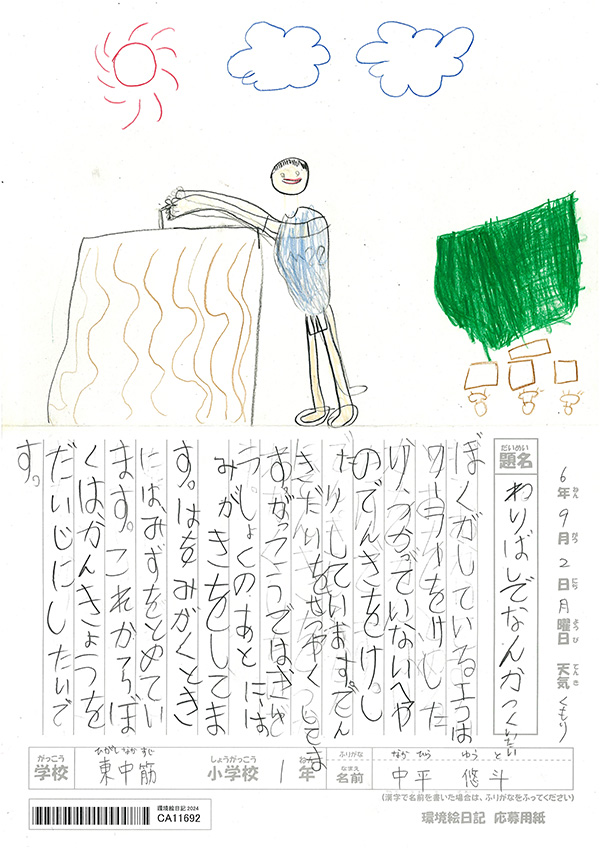 6年 9月 2日 月曜日 天気 くもり
ねん がつ にち ようび てんき
だいめい
題名 わりばしでなんかつくりたい
ぼくがしているエコは
クーラーをけした
り、つかっていないへや
のでんきをけし
たりしています。でん
きだいをせつやくしてま
す。がっこうではきゅ
うしょくのあとには、
みがきをしてま
す。はをみがくとき
には、みずをとめてい
ます。これからぼ
くはかんきょうを
だいじにしたいで
す。
がっこう ひがしなかすじ しょうがっこう ねん ふりがな なかひら ゆうと
学校 東中筋 小学校 1年 なまえ 名前 中平 悠斗
(漢字で名前を書いた場合は、ふりがなをふってください)
環境絵日記2024
CA11692
環境絵日記 応募用紙